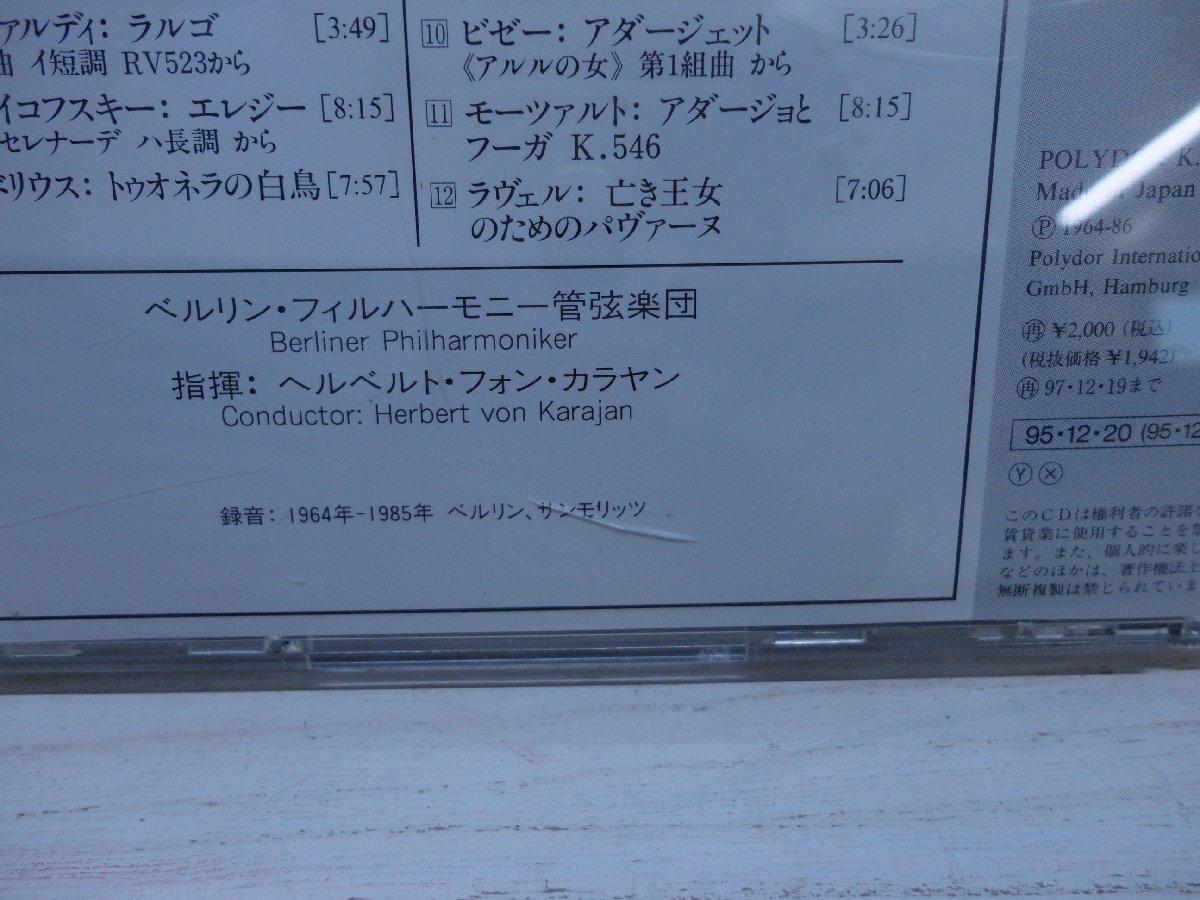 ァルディ: ラルゴ [3:49]
曲 イ短調 RV523から
イコフスキー: エレジー [8:15]
セレナーデ ハ長調 から
ベリウス: トゥオネラの白鳥 [7:57]
10 ビゼー: アダージェット [3:26]
《アルルの女》 第1組曲 から
11 モーツァルト: アダージョと [8:15]
フーガ K.546
12 ラヴェル: 亡き王女 [7:06]
のためのパヴァーヌ
ベルリン・フィルハーモニー管弦楽団
Berliner Philharmoniker
指揮: ヘルベルト・フォン・カラヤン
Conductor: Herbert von Karajan
録音: 1964年-1985年 ベルリン、サンモリッツ
POLYDOR K.
Made in Japan
Ⓟ 1964-86
Polydor Internatio
GmbH, Hamburg
再 ¥2,000 (税込)
(税抜価格 ¥1,942)
再 97・12・19まで
95・12・20 (95・12
Ⓨ Ⓧ
このCDは権利者の許諾な
賃貸業に使用することを禁
ます。また、個人的に楽し
などのほかは、著作権法上
無断複製は禁じられていま